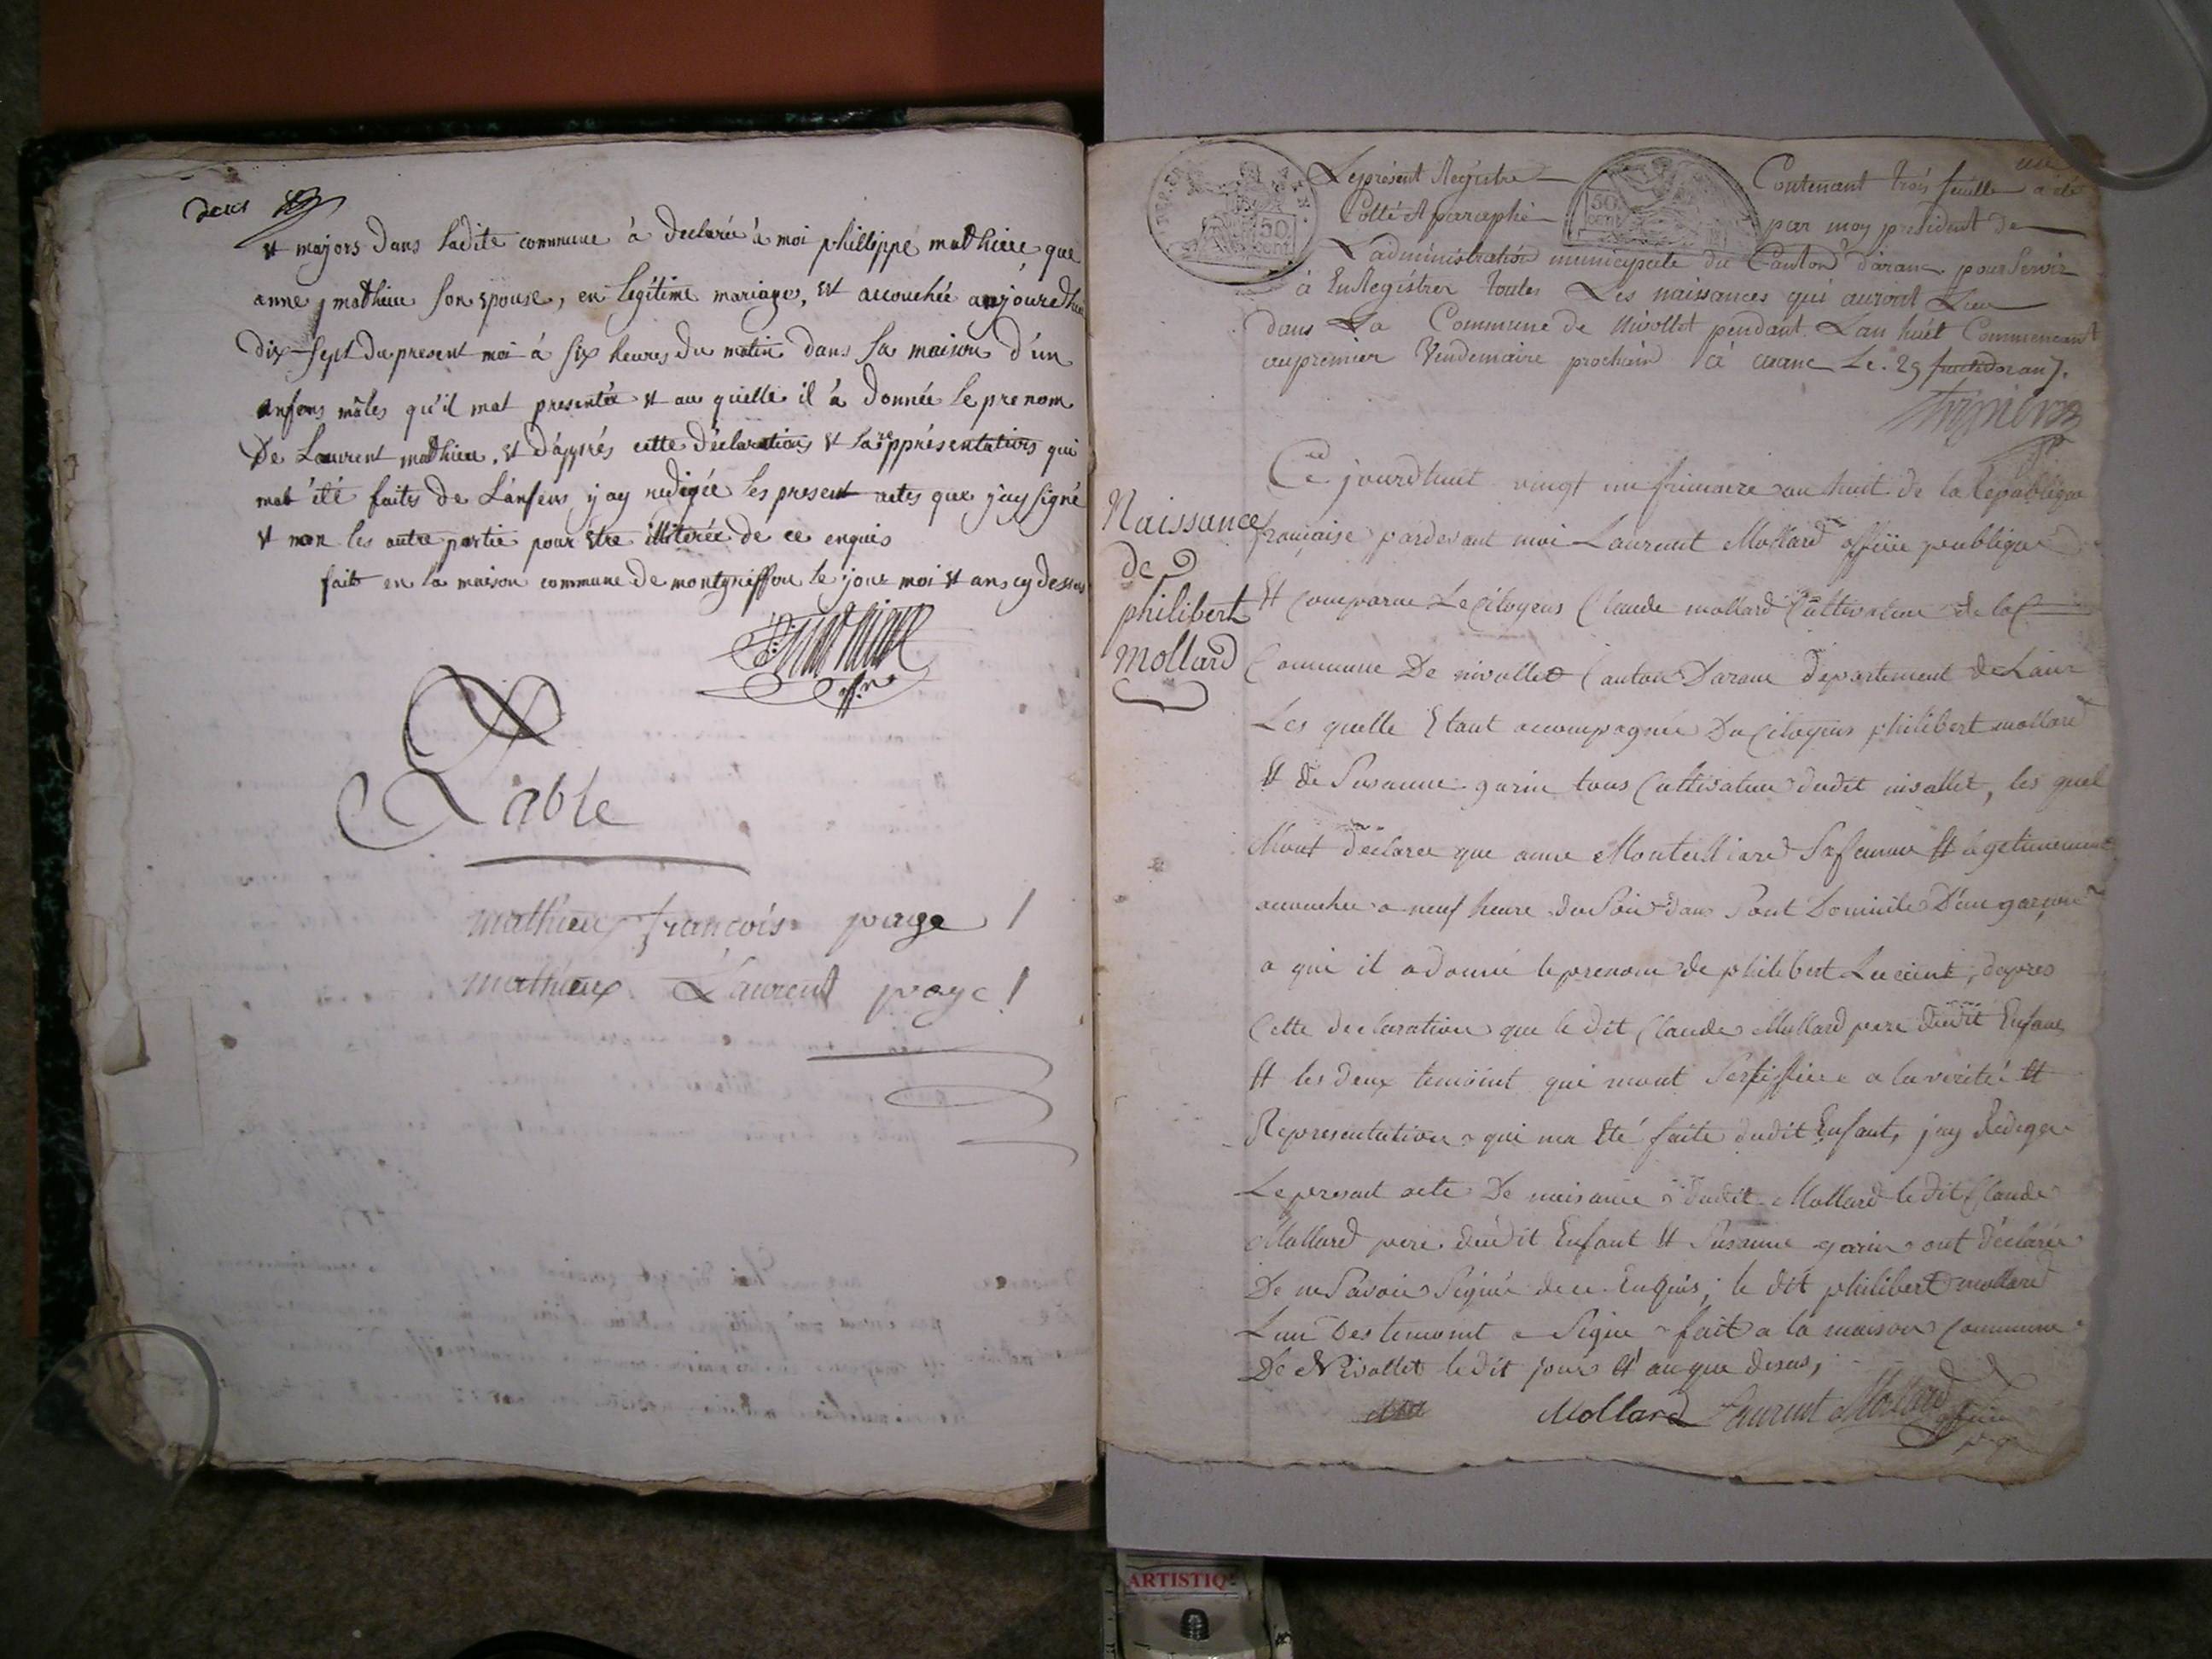 deux
et majors dans ladite commune à declarée à moi phillippe mathieu que
anne mathieu son epouse, en legitime mariage, est accouchée aujourdhui
dix-sept du present moi à six heures du matin dans sa maison d'un
enfens mâles qu'il mat presentée et au quelle il à donnée le prenom
De Laurent mathieu, et d'apprés cette déclarations et la represéntations qui
mat été faites de l'anfens j'ay redigée les present actes que j'ay signé
et non les autre partie pour être illiterée de ce enquis
fait en la maison commune de montgriffon le jour moi et ans cy dessus
Table
mathieux françois page 1
mathieux Laurent page 1
un
Le présent Registre Contenant trois feuille a été
Cotté et paraphé par moy president de
L'administration municipale du Canton d'aranc pour Servir
à EnRegistrer toutes Les naissances qui auront Lieu
dans La Commune de Nivollet pendant L'an huit Commencant
au premier Vendemiaire prochain à aranc Le 29 fructidor an 7.
50 cent
50 cent
Naissance
de
philibert
mollard
Ce jourdhuit vingt un frimaire an huit de la Republique
française pardevant moi Laurent Mollard officie publique
Et comparue Le Citoyens Claude mollard Cultivateur de la
Commune De nivollet Canton Daranc departement de Lain
Les quelle Etant accompagnée Du Citoyens philibert mollard
Et de Susanne garin tous Cultivateur dudit nivollet, les quel
Mont declaree que anne Montelliard Sa femme Et legetimement
accouchee a neuf heure du Soir dans Sont Domicile D'un garçons
a qui il a donné le prenom de philibert, dapres
Cette declaration que le dit Claude Mollard pere dudit Enfans
Et les deux temoint qui mont Sertiffiee a la verité Et
Representation qui ma Eté faite dudit Enfant, jay Rediger
Le presant acte De naisance dudit Mollard le dit Claude
Mollard pere dudit Enfant Et Susanne garin ont declarée
De ne Savoir Signée de ce Enquis; le dit philibert mollard
L'un Des temoint a Signe fait a la maison Commune
De Nivollet le dit jour Et an que desus,
Mollard Laurent Mollard
officie
ARTISTIQ